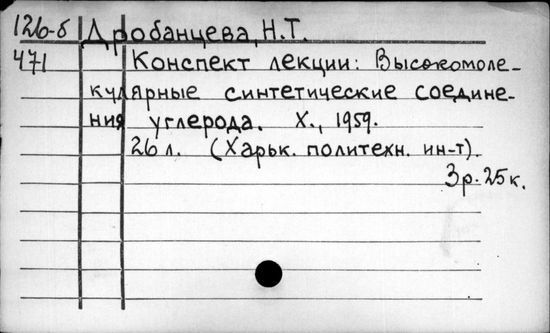 126-б Дробанцева, Н.Т.
471 Конспект лекции: Высокомоле-
кулярные синтетические соедине-
ния углерода. Х., 1959.
26 л. (Харьк. политехн. ин-т).
3 р. 25 к.